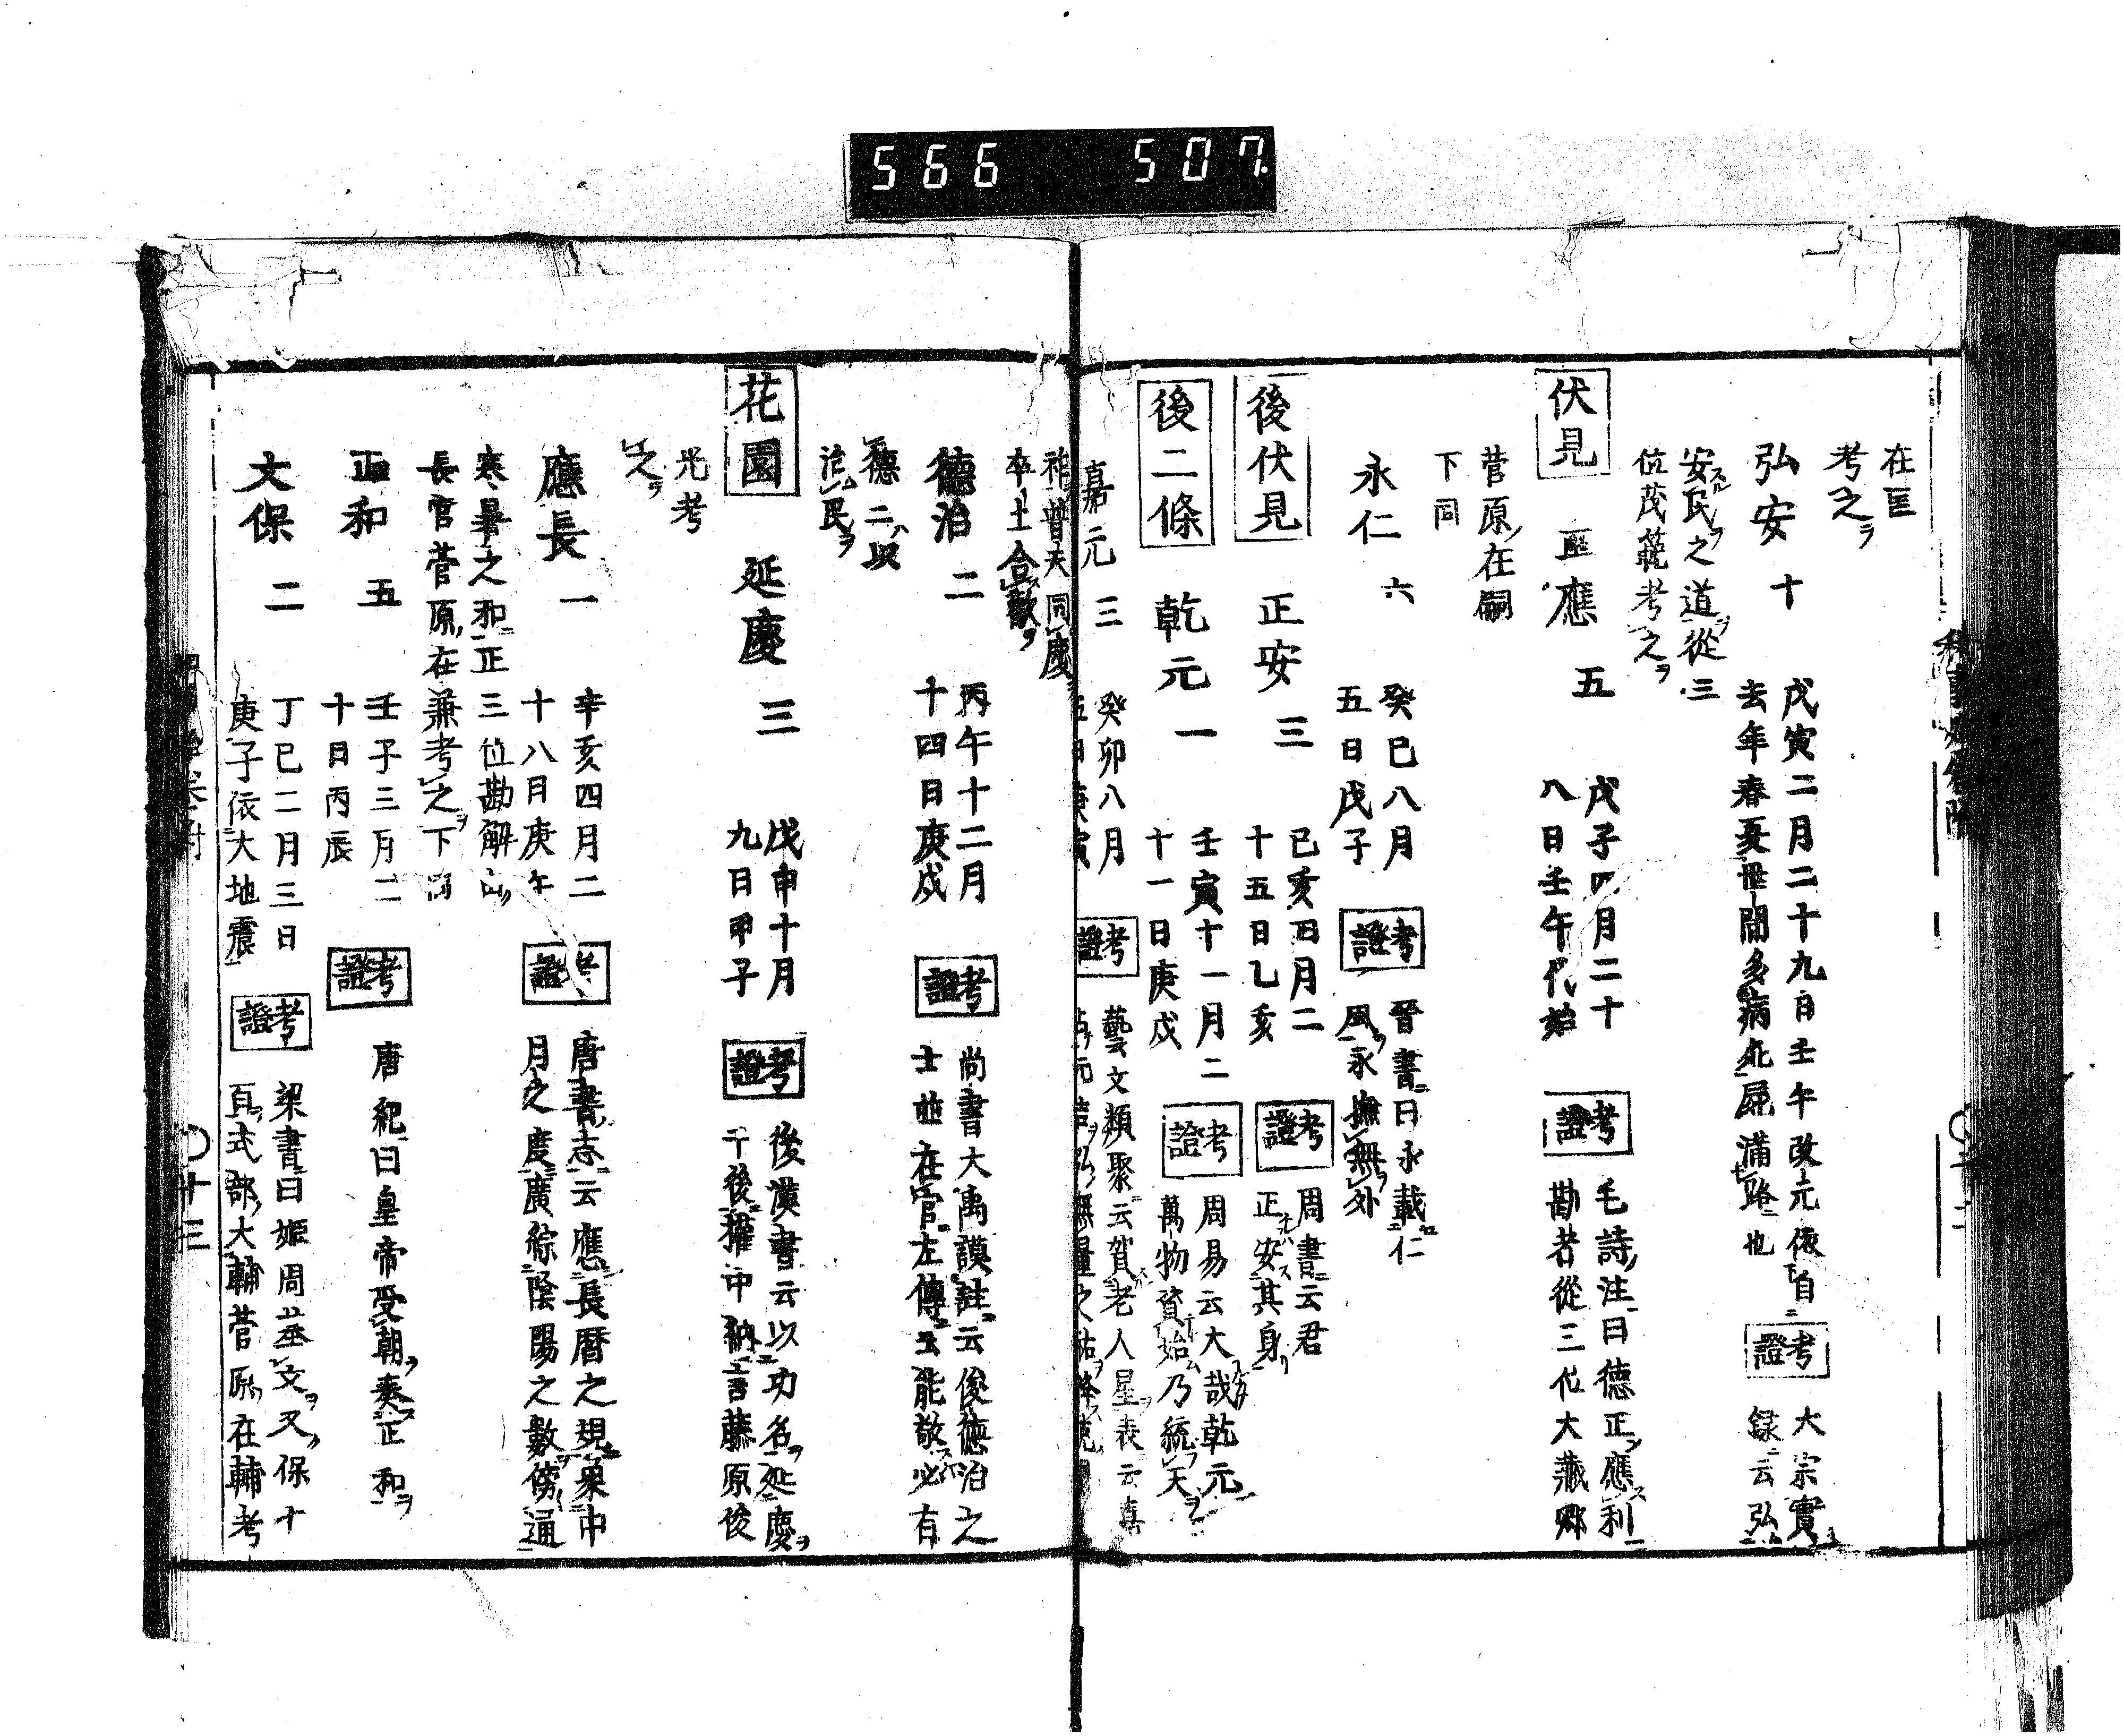 566 507.
在匡
考之ヲ
弘安 十 戊寅二月二十九日壬午改元依自
去年春夏世間多病死屍滿路也 考證 大宗實
録云弘
安スル民ヲ之道ヲ從三
位茂範考之ヲ
伏見 正應 五 戊子四月二十
八日壬午代始 考證 毛詩注曰德正應利
勘者從三位大藏卿
菅原在嗣
下同
永仁 六 癸巳八月
五日戊子 考證 晉書曰永載仁
風ヲ永撫無外
後伏見 正安 三 己亥四月二
十五日乙亥 考證 周書云君
正安其身
後二條 乾元 一 壬寅十一月二
十一日庚戌 考證 周易云大哉乾元
萬物資始乃統天
嘉元 三 癸卯八月
五日庚寅 考證 藝文類聚云賀老人星表云嘉
占元吉弘無量之祐降克
祚普天同慶
率土合歡
德治 二 丙午十二月
十四日庚戌 考證 尚書大禹謨註云俊德治之
士並在官左傳云能敬必有
德二以
治民ヲ
花園 延慶 三 戊申十月
九日甲子 考證 後漢書云以功名延慶ヲ
于後權中納言藤原俊
光考
之ヲ
應長 一 辛亥四月二
十八月庚午 考證 唐書志云應長曆之規象中
月之度廣綜陰陽之數傍通
寒暑之和正三位勘解由
長官菅原在兼考之下同
正和 五 壬子三月二
十日丙辰 考證 唐紀曰皇帝受朝奏正和
文保 二 丁巳二月三日
庚子依大地震 考證 梁書曰姬周基文又保十
頁式部大輔菅原在輔考
〇十三